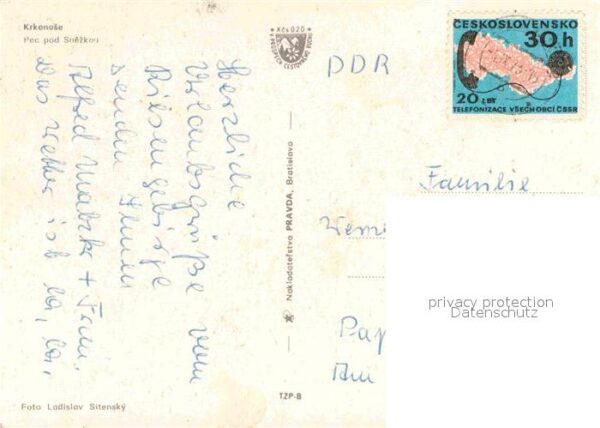 Krkonoše
Pec pod Sněžkou
Kčs 0,20
Herzliche
Urlaubsgrüße vom
Riesengebirge
senden Ihnen
Alfred + Fam.
Das Wetter ist la, la,
Foto Ladislav Sitenský
Nakladatelstvo PRAVDA, Bratislava
TZP-B
DDR
ČESKOSLOVENSKO
30 h
20 LET
TELEFONIZACE VŠECH OBCÍ ČSSR
Familie
privacy protection
Datenschutz
Am